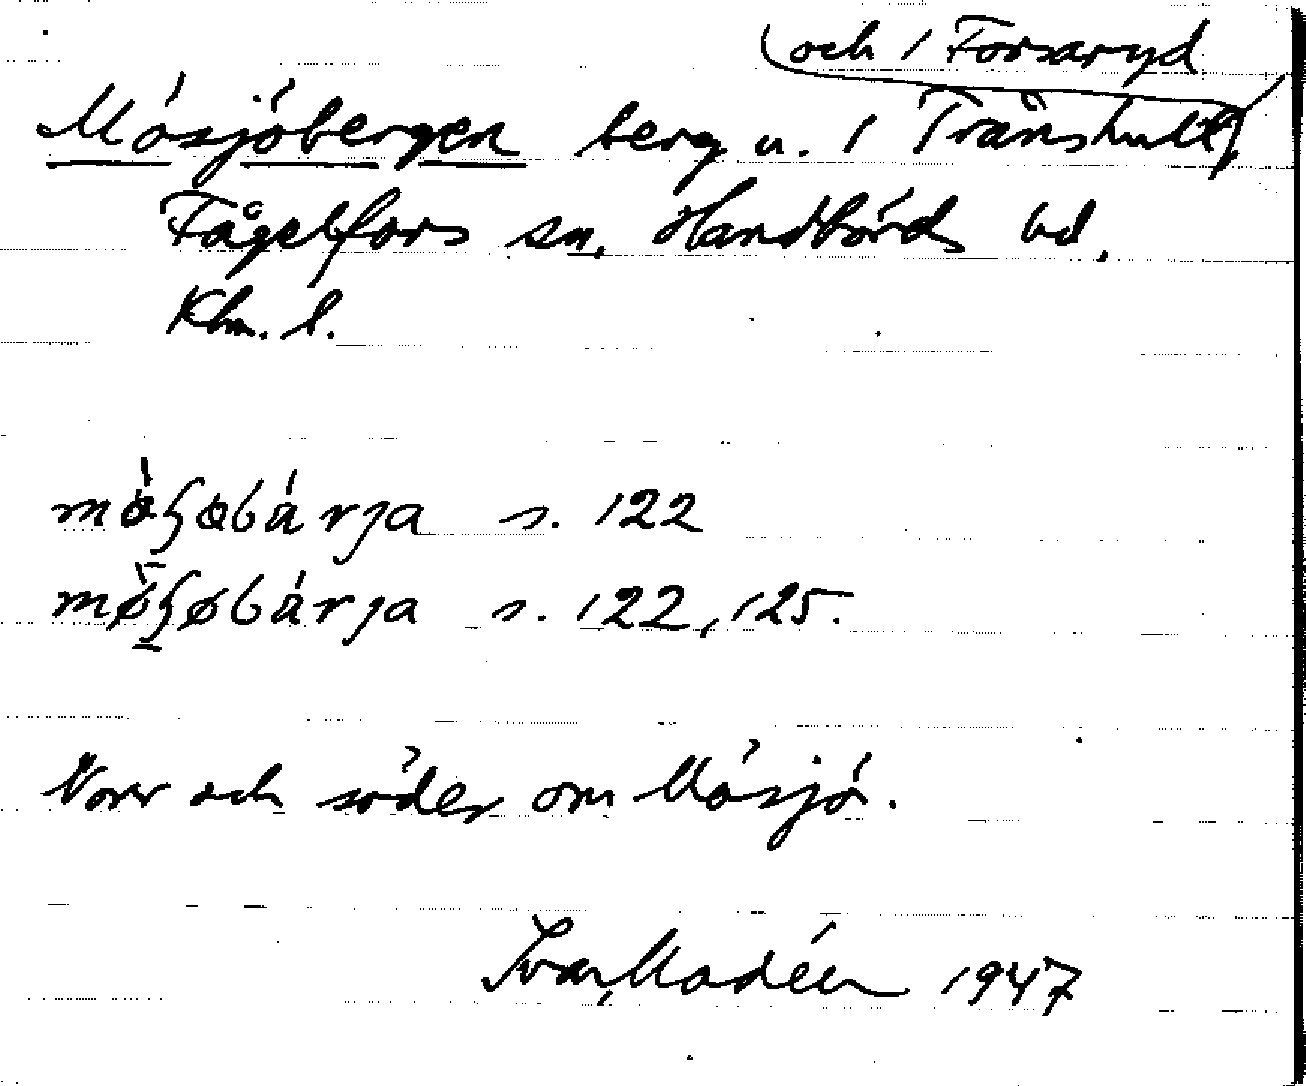 och i Forsaryd
Mösjöbergen berg u. i Tränshult,
Fågelfors sn, Handbörds hd,
Klm. l.
s. 122
s. 122, 125.
Norr och söder om Mösjö.
Ivar Modéer 1947